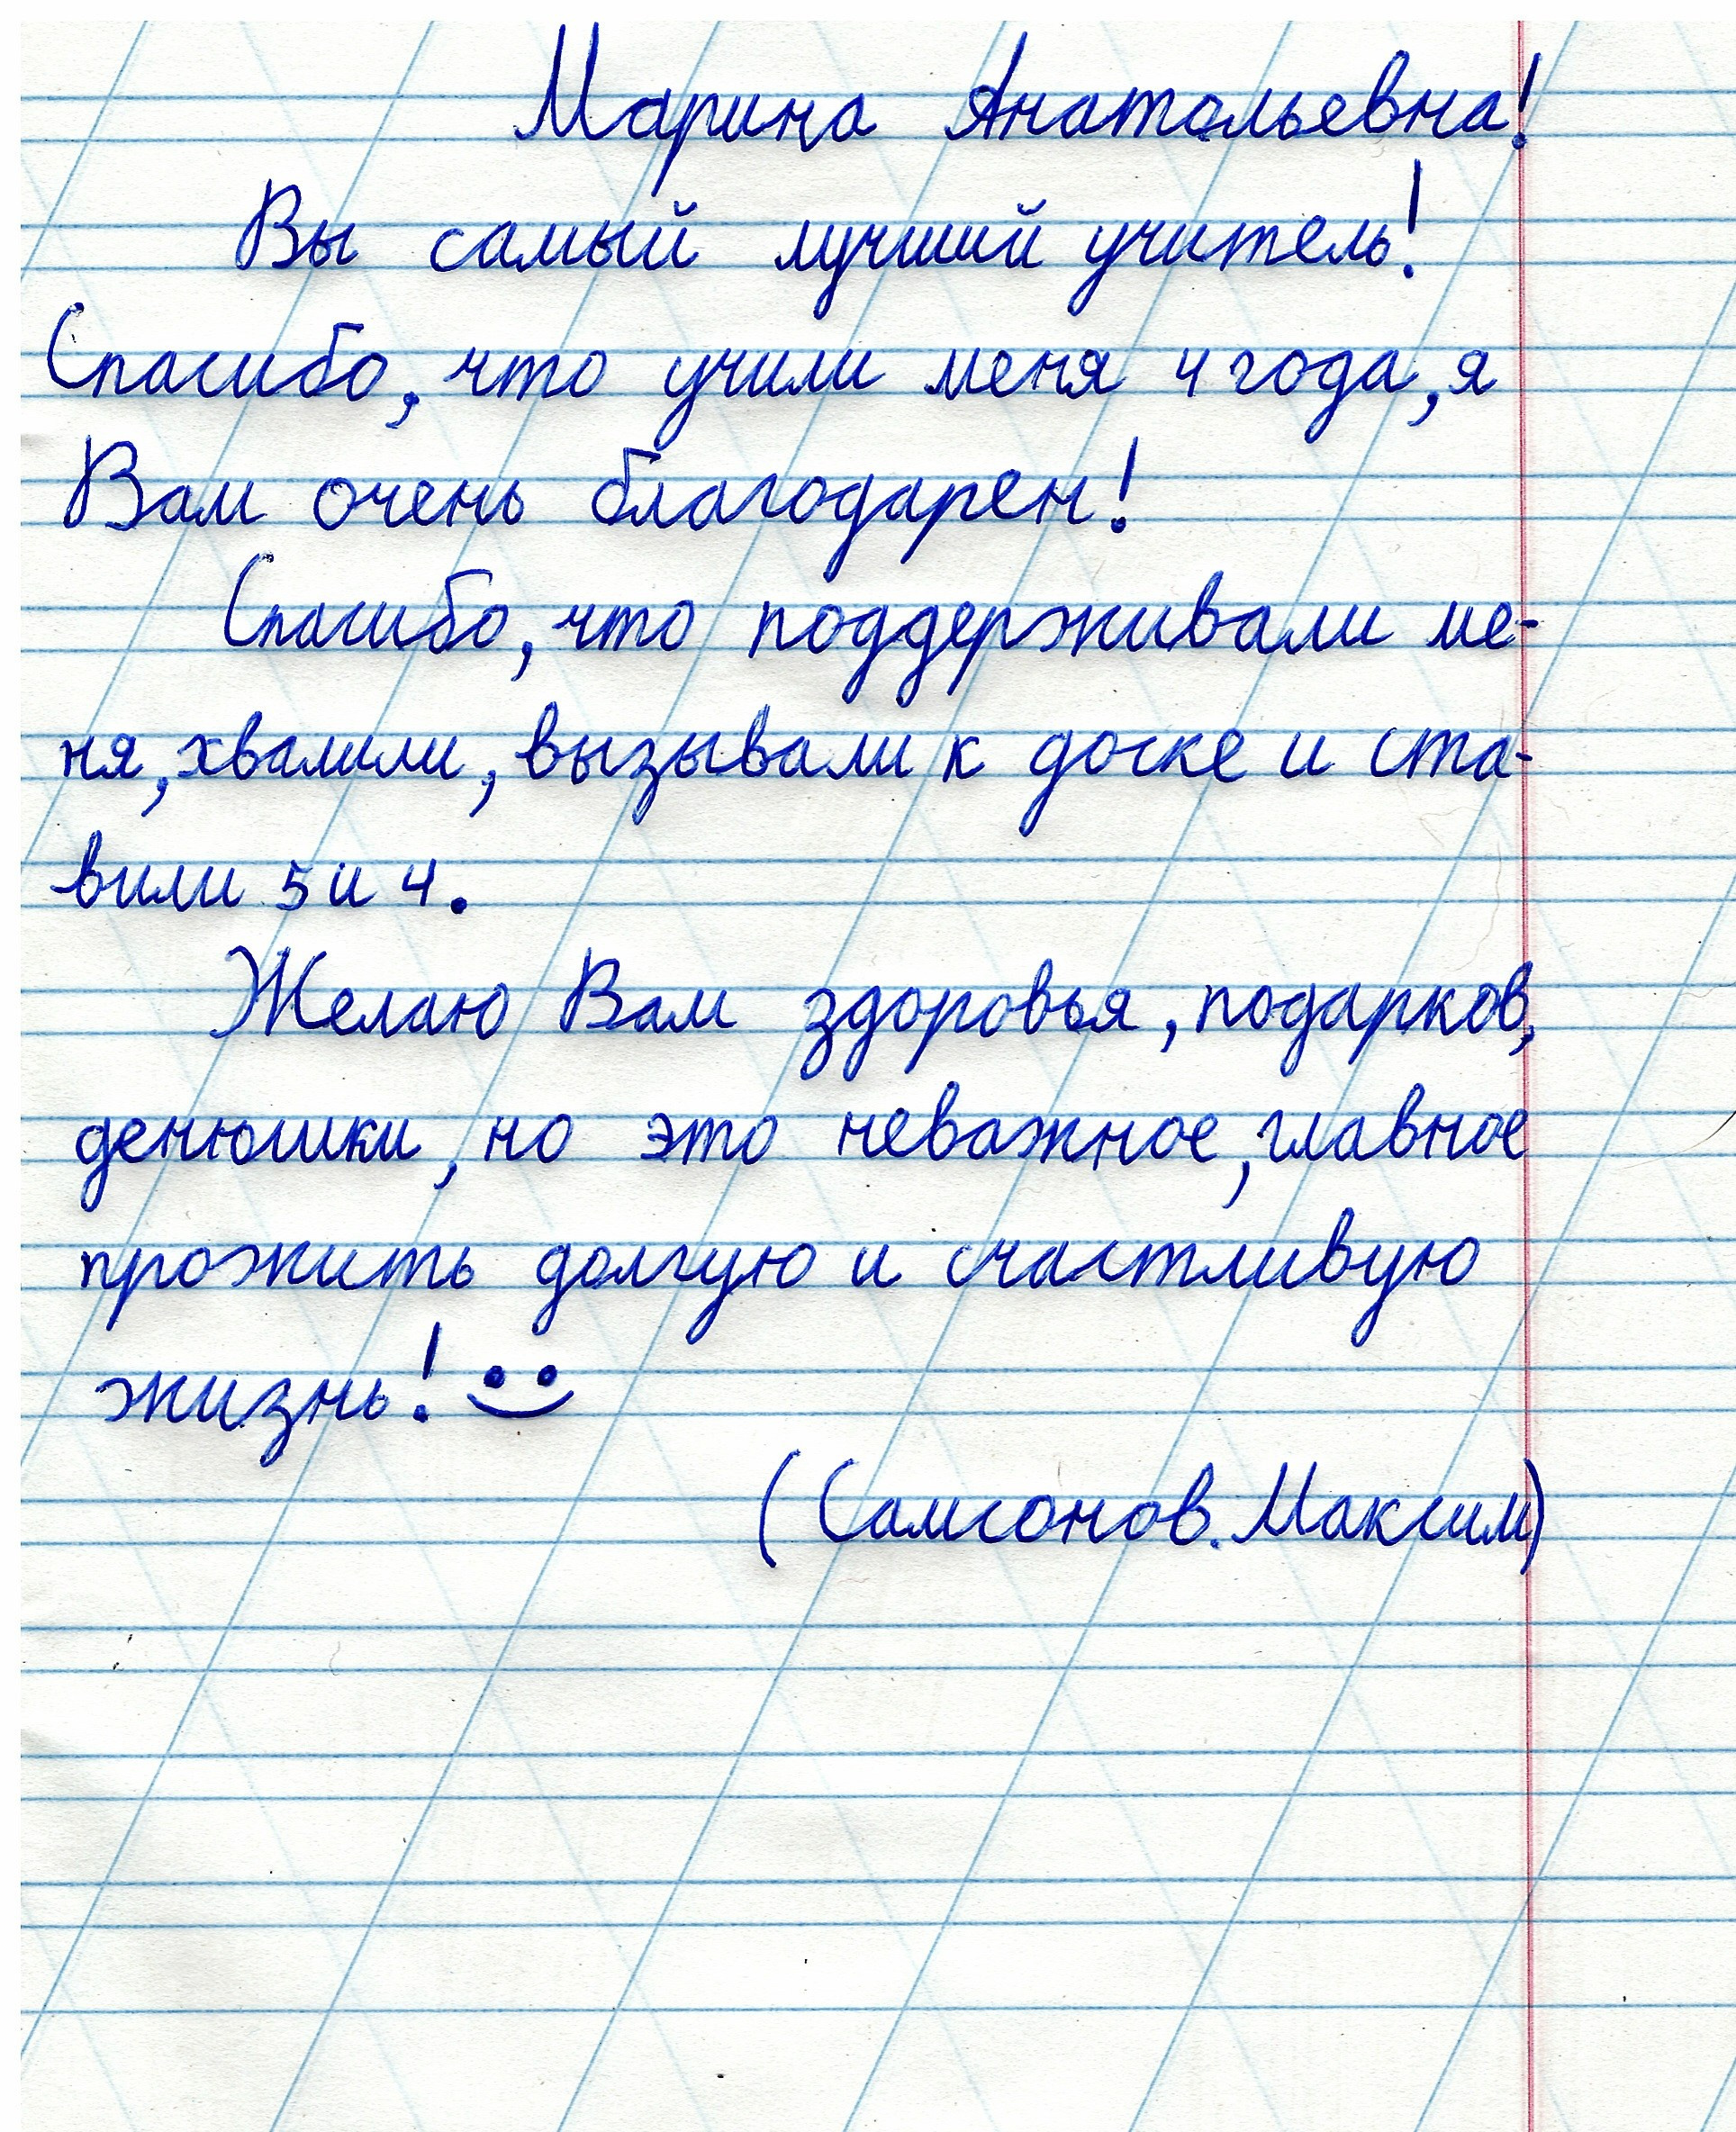 Марина Анатольевна!
Вы самый лучший учитель!
Спасибо, что учили меня 4 года, я
Вам очень благодарен!
Спасибо, что поддерживали ме-
ня, хвалили, вызывали к доске и ста-
вили 5 и 4.
Желаю Вам здоровья, подарков,
денюшки, но это неважное, главное
прожить долгую и счастливую
жизнь!
(Самсонов. Максим)